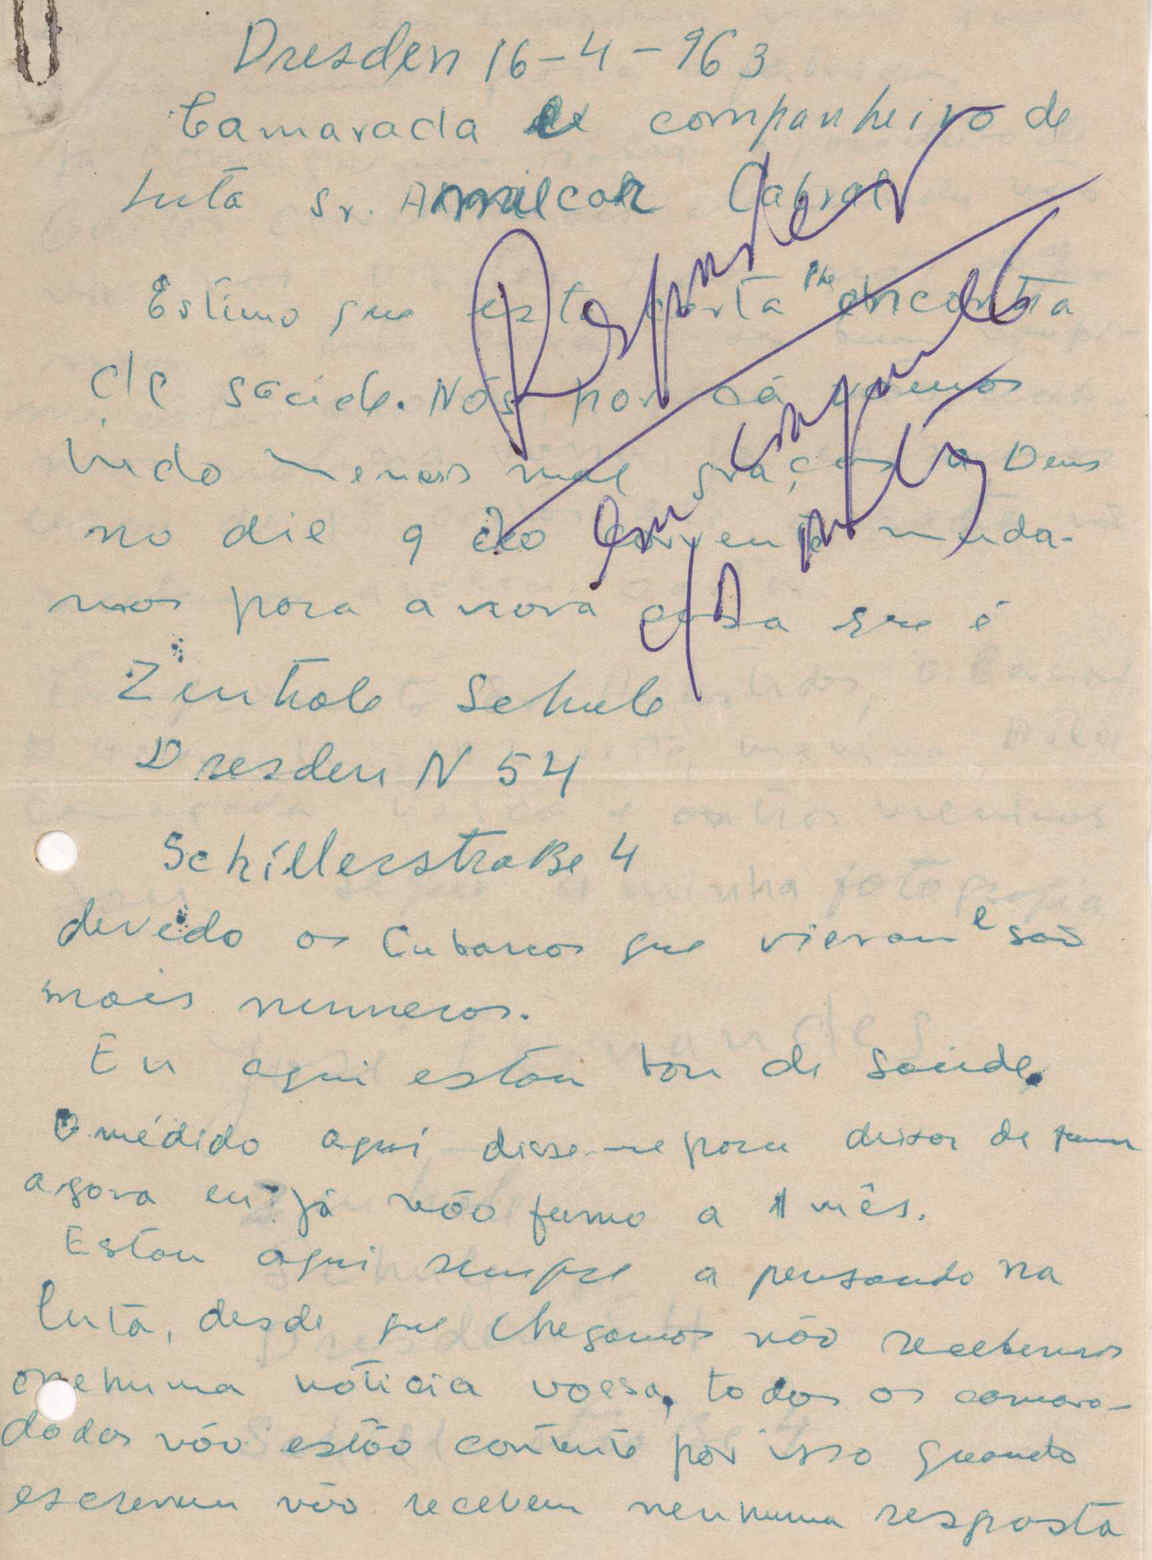 Dresden 16-4-963
Camarada e companheiro de
luta Sr. Amilcar Cabral
Estimo que esta carta lhe encontra
de saúde. Nós por cá vamos
indo menos mal graças a Deus
no die 9 do corrente muda-
mos para a nova casa que é
Zentrale Schule
Dresden N 54
Schillerstraße 4
devedo os Cubanos que vieram e são
mais numeros.
Eu aqui estou bou de saúde.
O médido aqui disse-me para deixar de fumar
agora eu já não fumo a 1 mês.
Estou aqui sempre a pensando na
luta, desde que chegamos não recebemos
nenhuma nóticia vossa, todos os camara-
dados não estão contente por isso quando
escrevem não recebem nenhuma resposta
Responder
em conjunto